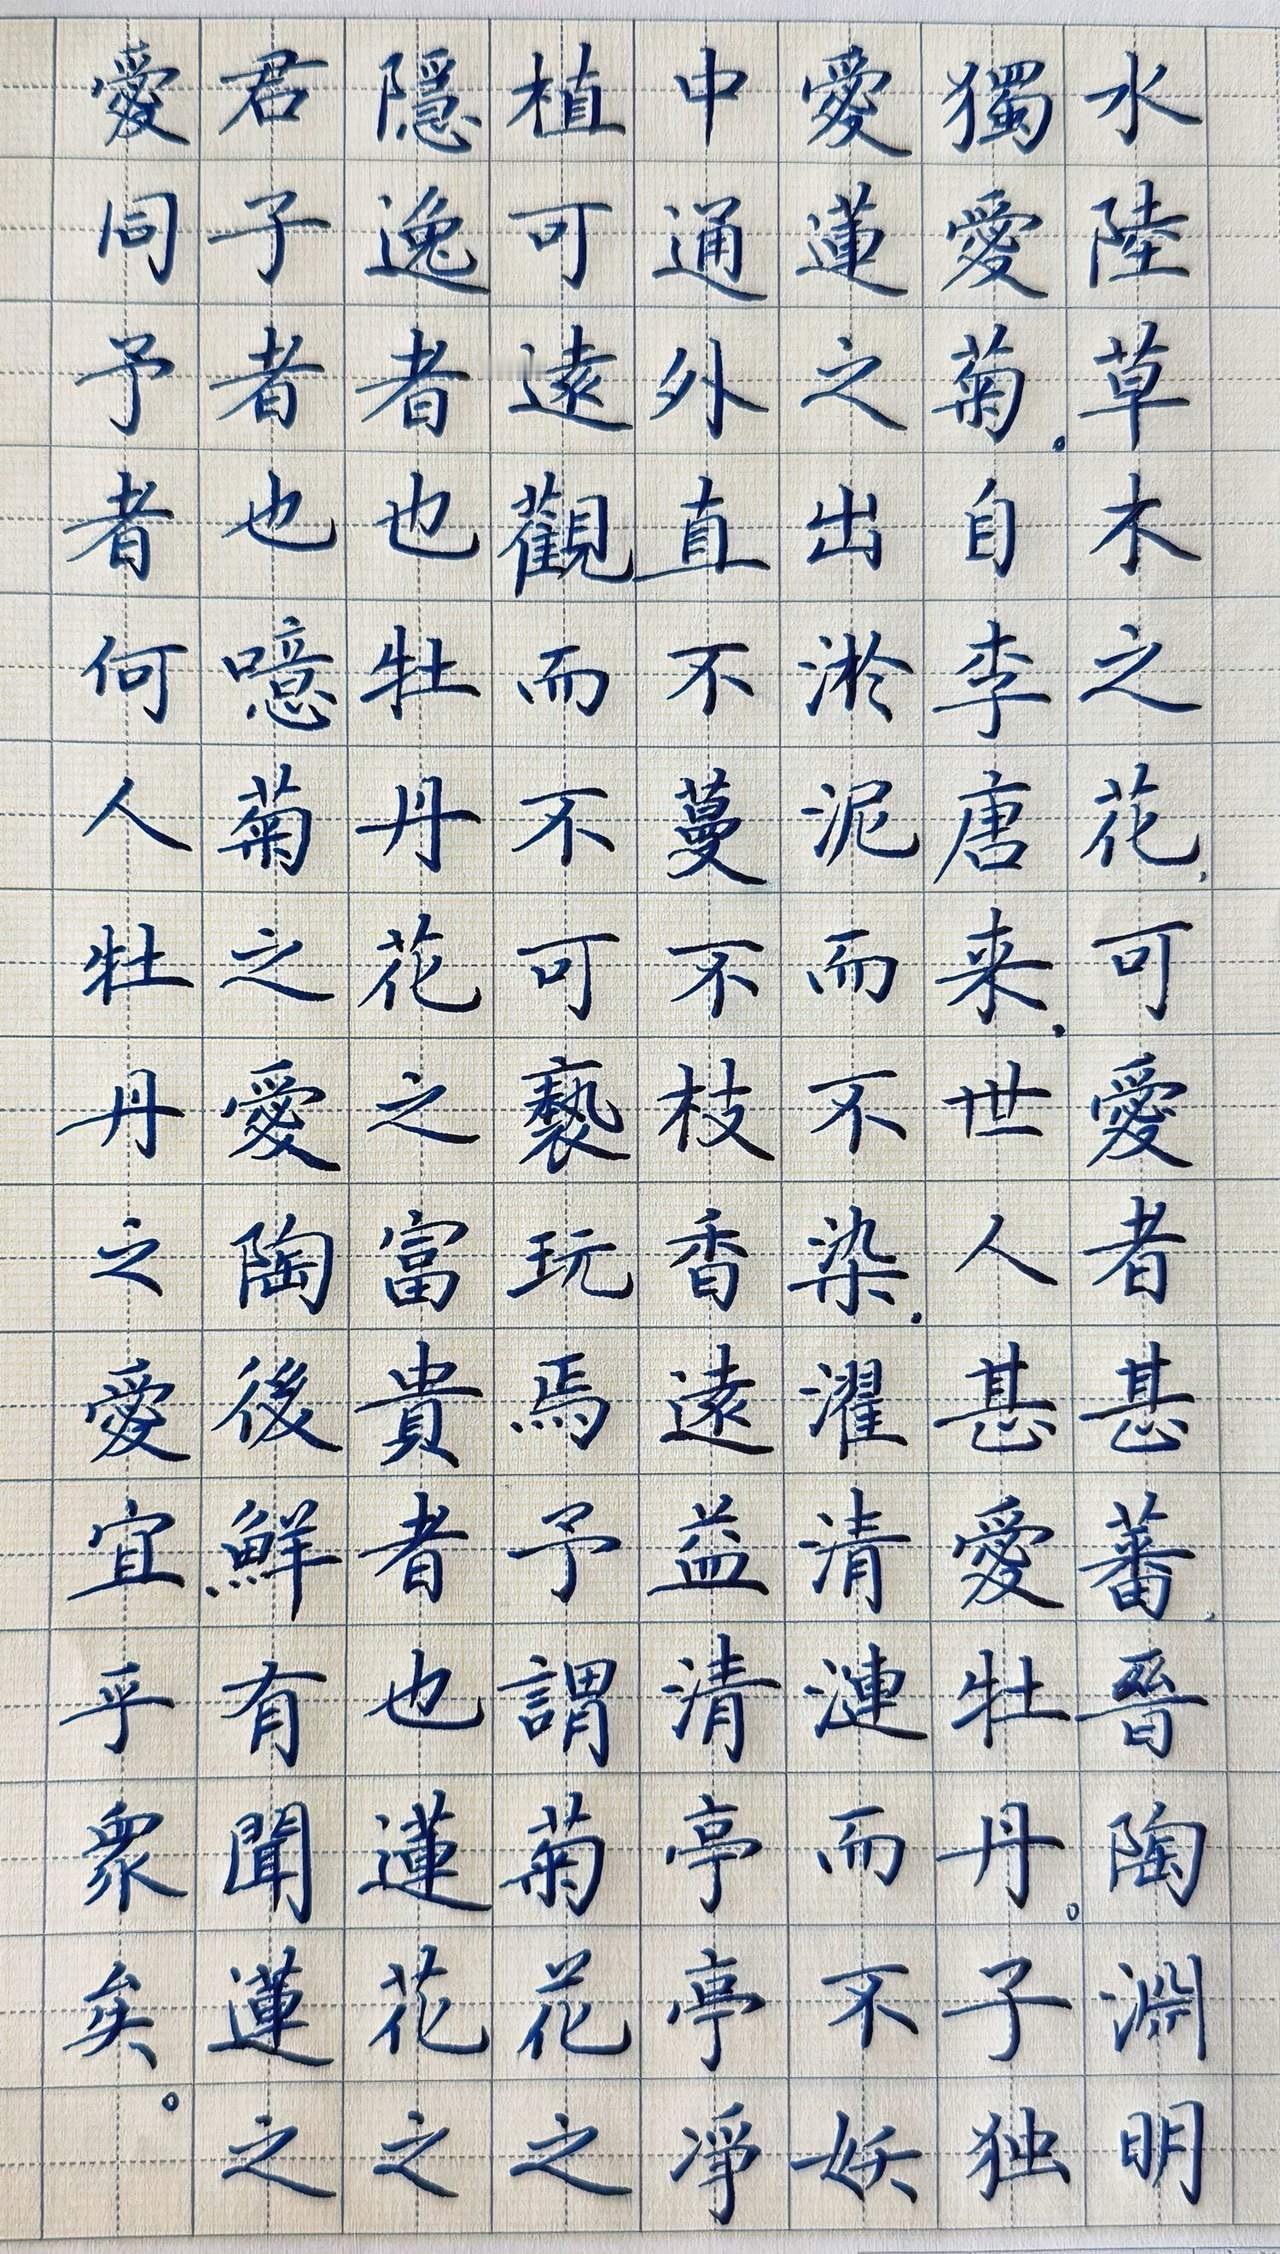 水陸草木之花,可愛者甚蕃,晉陶淵明
獨愛菊。自李唐来,世人甚愛牡丹。子独
愛蓮之出淤泥而不染,濯清漣而不妖
中通外直不蔓不枝香遠益清亭亭凈
植可遠觀而不可褻玩焉予謂菊花之
隱逸者也牡丹花之富貴者也蓮花之
君子者也噫菊之愛陶後鮮有聞蓮之
愛同予者何人牡丹之愛宜乎衆矣。